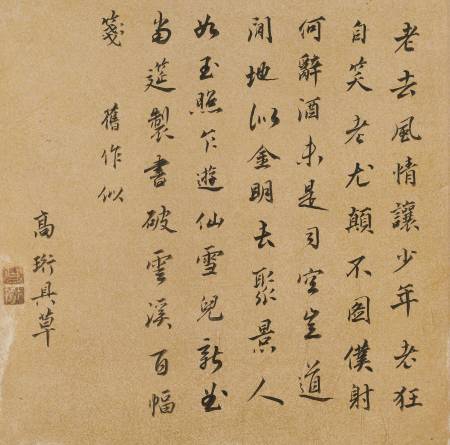 老去風情讓少年老狂
自笑老尤顛不圖僕射
何辭酒未是司空豈道
閒地似金明去聚景人
如玉照乍遊仙雪兒新出
當筵製書破雲溪百幅
箋 舊作似
高珩具草